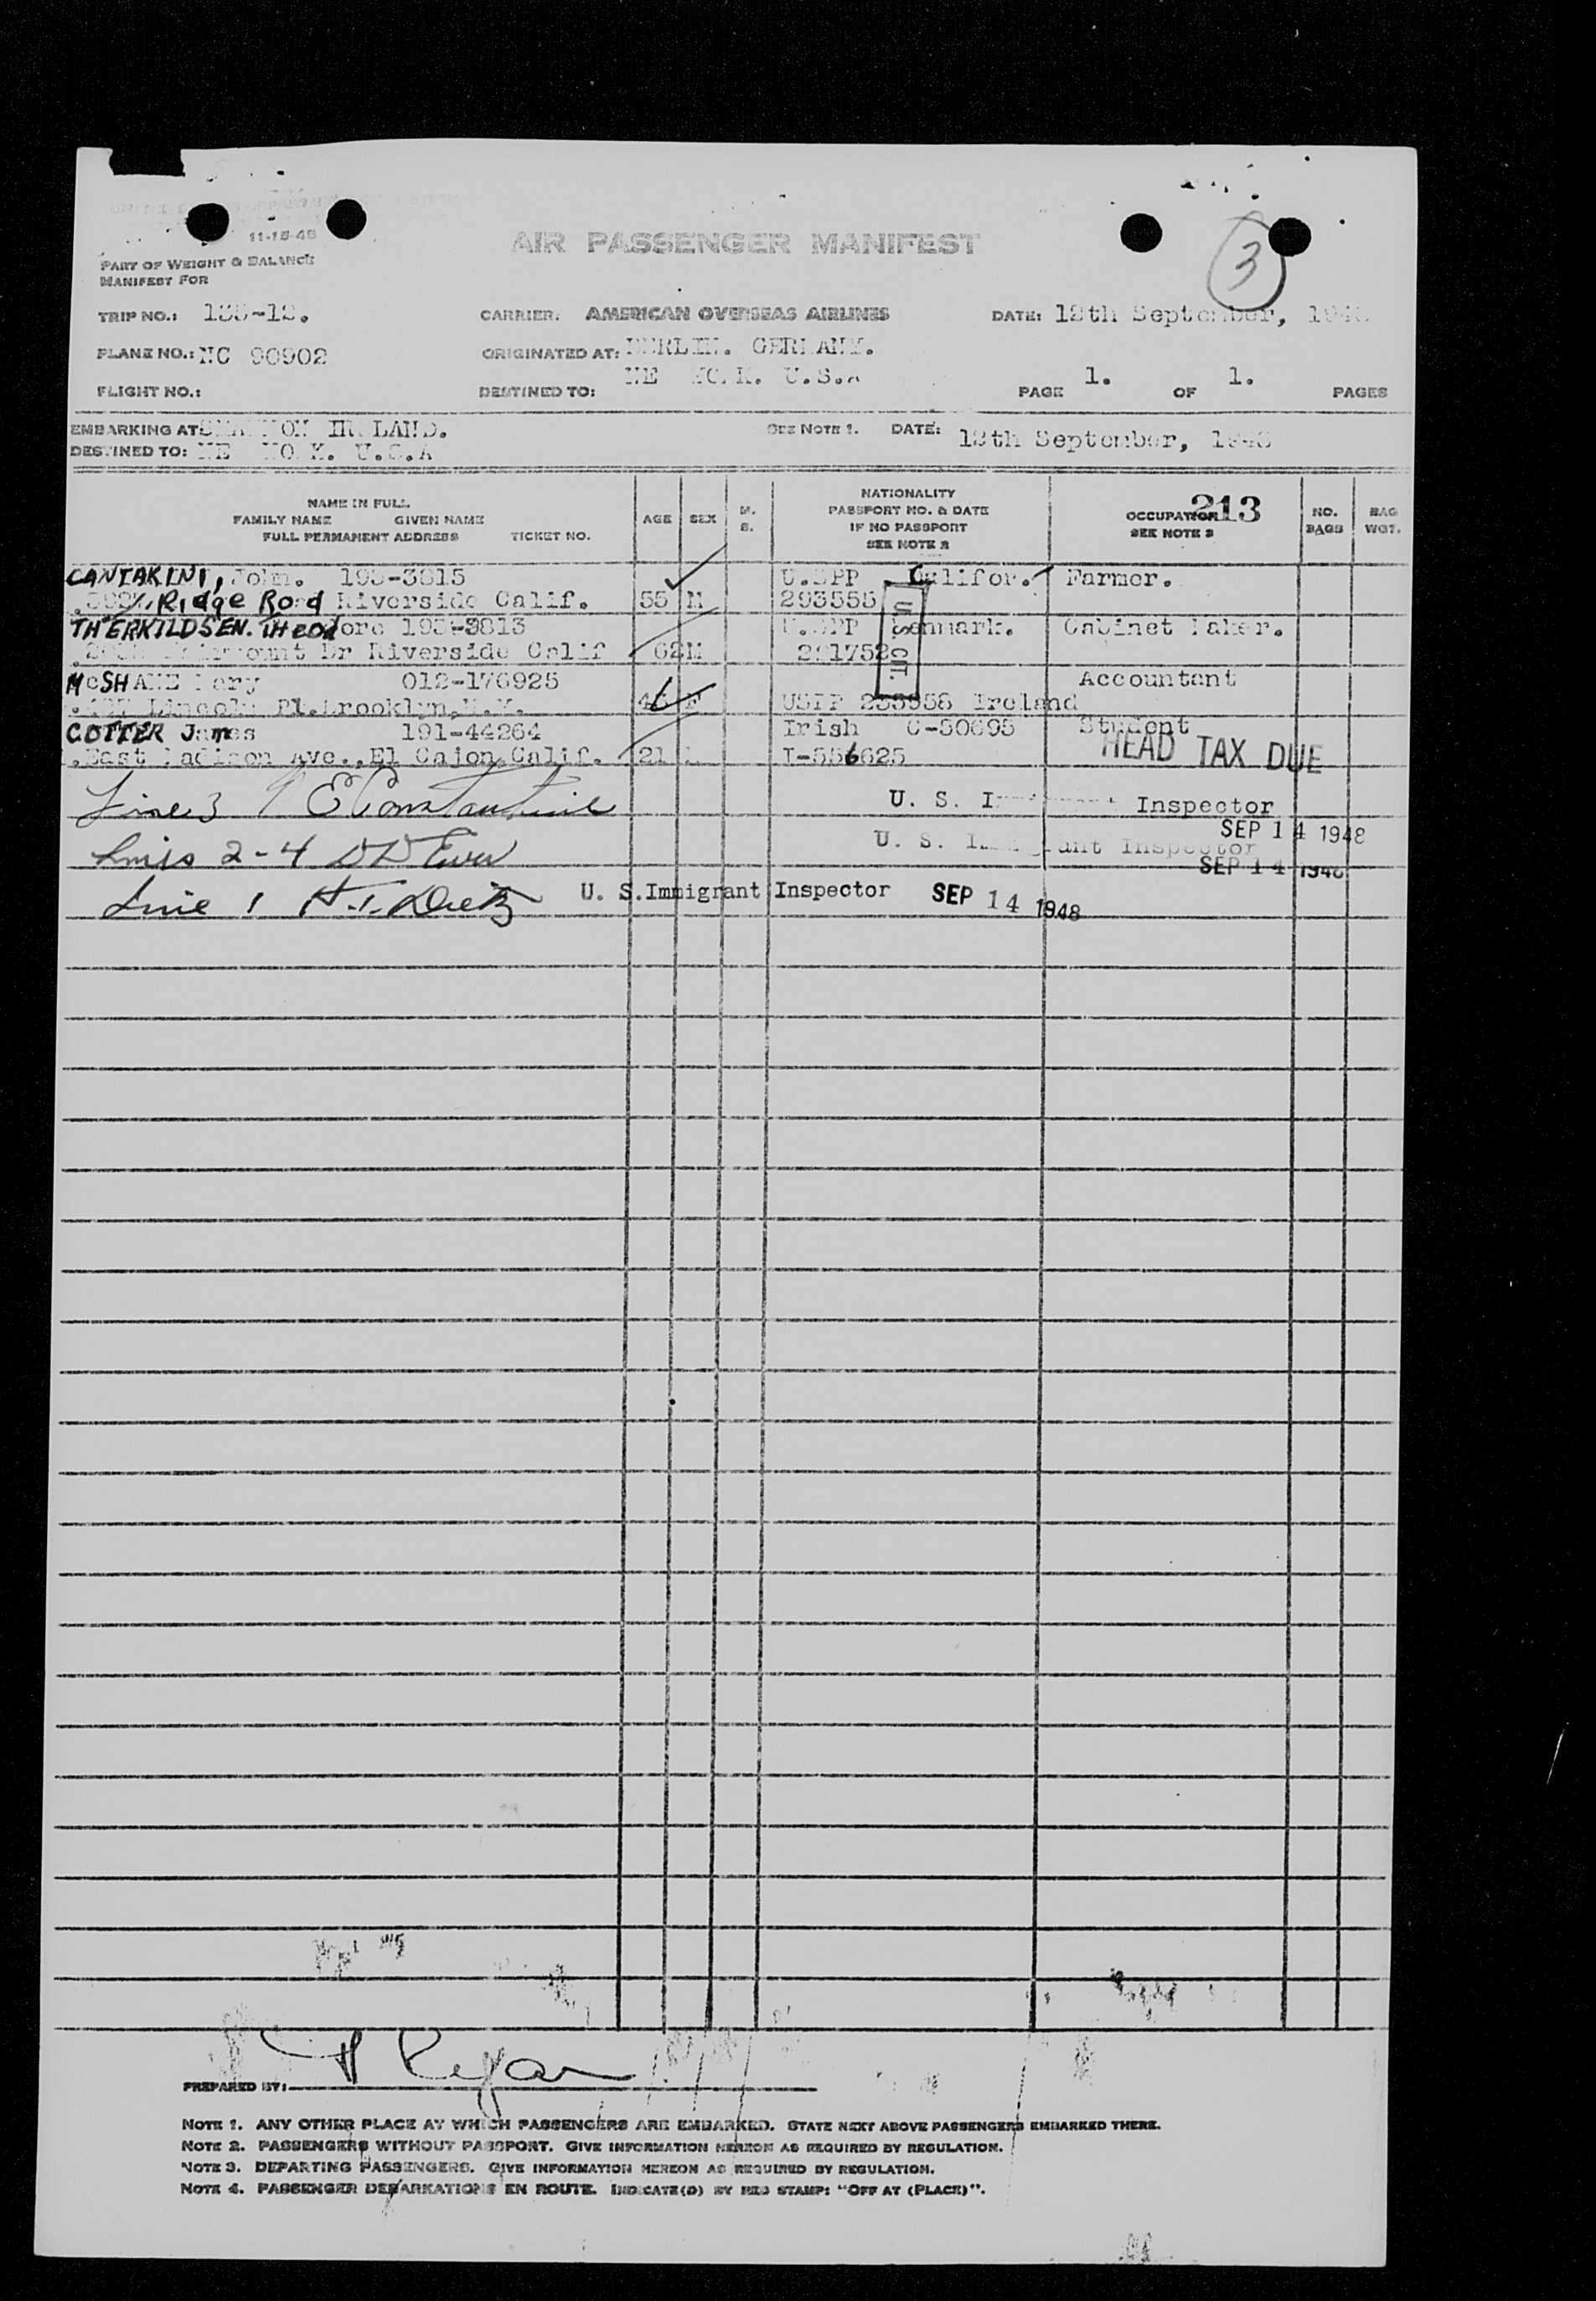 11-15-46
AIR PASSENGER MANIFEST
3
PART OF WEIGHT & BALANCE
MANIFEST FOR
TRIP NO.:
CARRIER: AMERICAN OVERSEAS AIRLINES
DATE: 12th September, 194
PLANE NO.: NC 90902
ORIGINATED AT: BERLIN. GERMANY.
FLIGHT NO.:
DESTINED TO: NE YO K. U.S.A
PAGE 1. OF 1. PAGES
EMBARKING AT SHANNON IRELAND.
SEE NOTE 1. DATE: 12th September, 1948
DESTINED TO: NE YO K. U.S.A
NAME IN FULL
FAMILY NAME GIVEN NAME
FULL PERMANENT ADDRESS TICKET NO.
AGE SEX M. S.
NATIONALITY
PASSPORT NO. & DATE
IF NO PASSPORT
SEE NOTE 2
OCCUPATION
SEE NOTE 3
213
NO. BAGS
BAG WGT.
CANTARINI, John. 193-3815 U.SPP Califor. Farmer.
Ridge Road Riverside Calif. 55 M 293555
THERKILDSEN. THEOdore 193-3813 U.SPP Denmark. Cabinet Maker.
Dr Riverside Calif 62 M
U S CIT.
McSHANE Mary 012-176925 Accountant
Lincoln Pl. Brooklyn, N.Y. F USPP Ireland
COTTER James 191-44264 Irish C-50695 Student
.East Madison Ave.,El Cajon,Calif. 21 I-556625
HEAD TAX DUE
Line 3 E Constantine U. S. Immigrant Inspector
SEP 14 1948
Lines 2-4 U. S. Immigrant Inspector
SEP 14 1948
Line 1 H.T. Dietz U. S.Immigrant Inspector SEP 14 1948
PREPARED BY: Regan
NOTE 1. ANY OTHER PLACE AT WHICH PASSENGERS ARE EMBARKED. STATE NEXT ABOVE PASSENGERS EMBARKED THERE.
NOTE 2. PASSENGERS WITHOUT PASSPORT. GIVE INFORMATION HEREON AS REQUIRED BY REGULATION.
NOTE 3. DEPARTING PASSENGERS. GIVE INFORMATION HEREON AS REQUIRED BY REGULATION.
NOTE 4. PASSENGER DEBARKATIONS EN ROUTE. INDICATE(D) BY RED STAMP: "OFF AT (PLACE)".